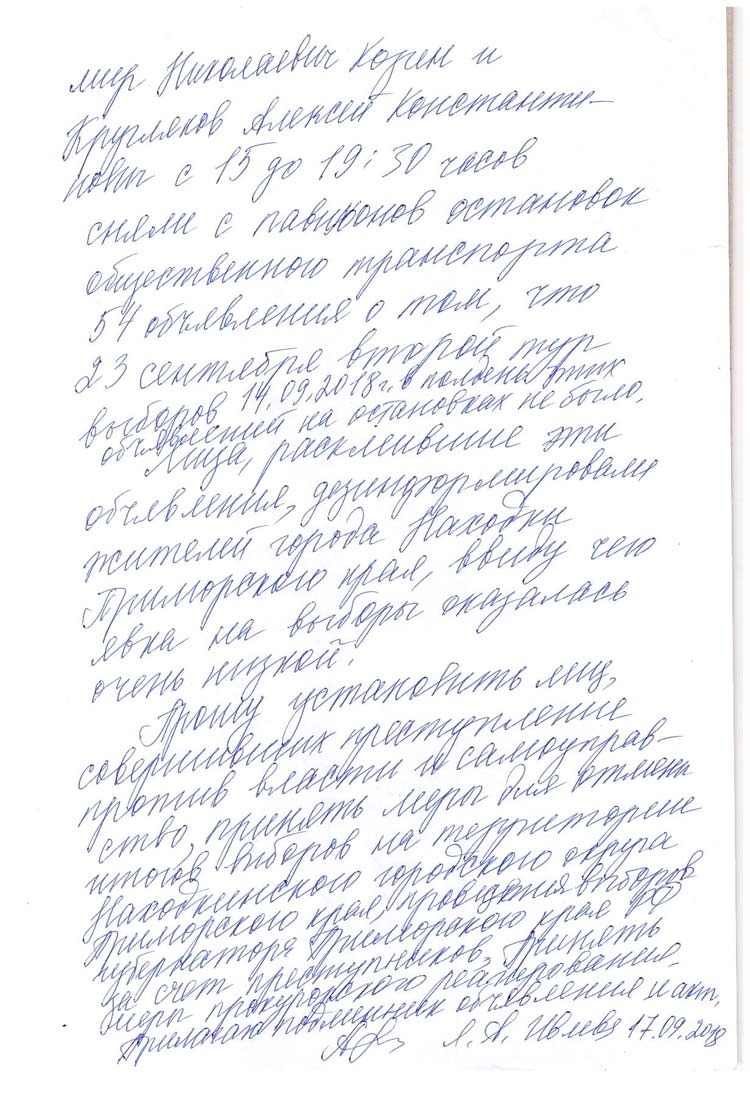 мир Николаевич Козен и
Кругляков Алексей Константи-
новы с 15 до 19:30 часов
сняли с павильонов остановок
общественного транспорта
54 объявления о том, что
23 сентября второй тур
выборов 14.09.2018г. в полдень этих
объявлений на остановках не было.
Лица, расклеившие эти
объявления, дезинформировали
жителей города Находки
Приморского края, ввиду чего
явка на выборы оказалась
очень низкой.
Прошу установить лиц,
совершивших преступление
против власти и самоуправ-
ство, принять меры для отмены
итогов выборов на территории
Находкинского городского округа
Приморского края, проведения выборов
губернатора Приморского края РФ
за счёт преступников. Принять
меры прокурорского реагирования.
Прилагаю подлинник объявления и акт.
Л. А. Ивлева 17.09.2018